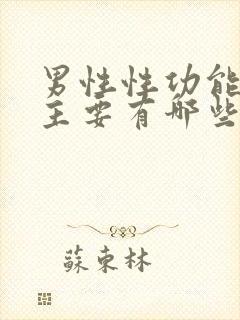 男性性功能
主要有哪些
蘇東林